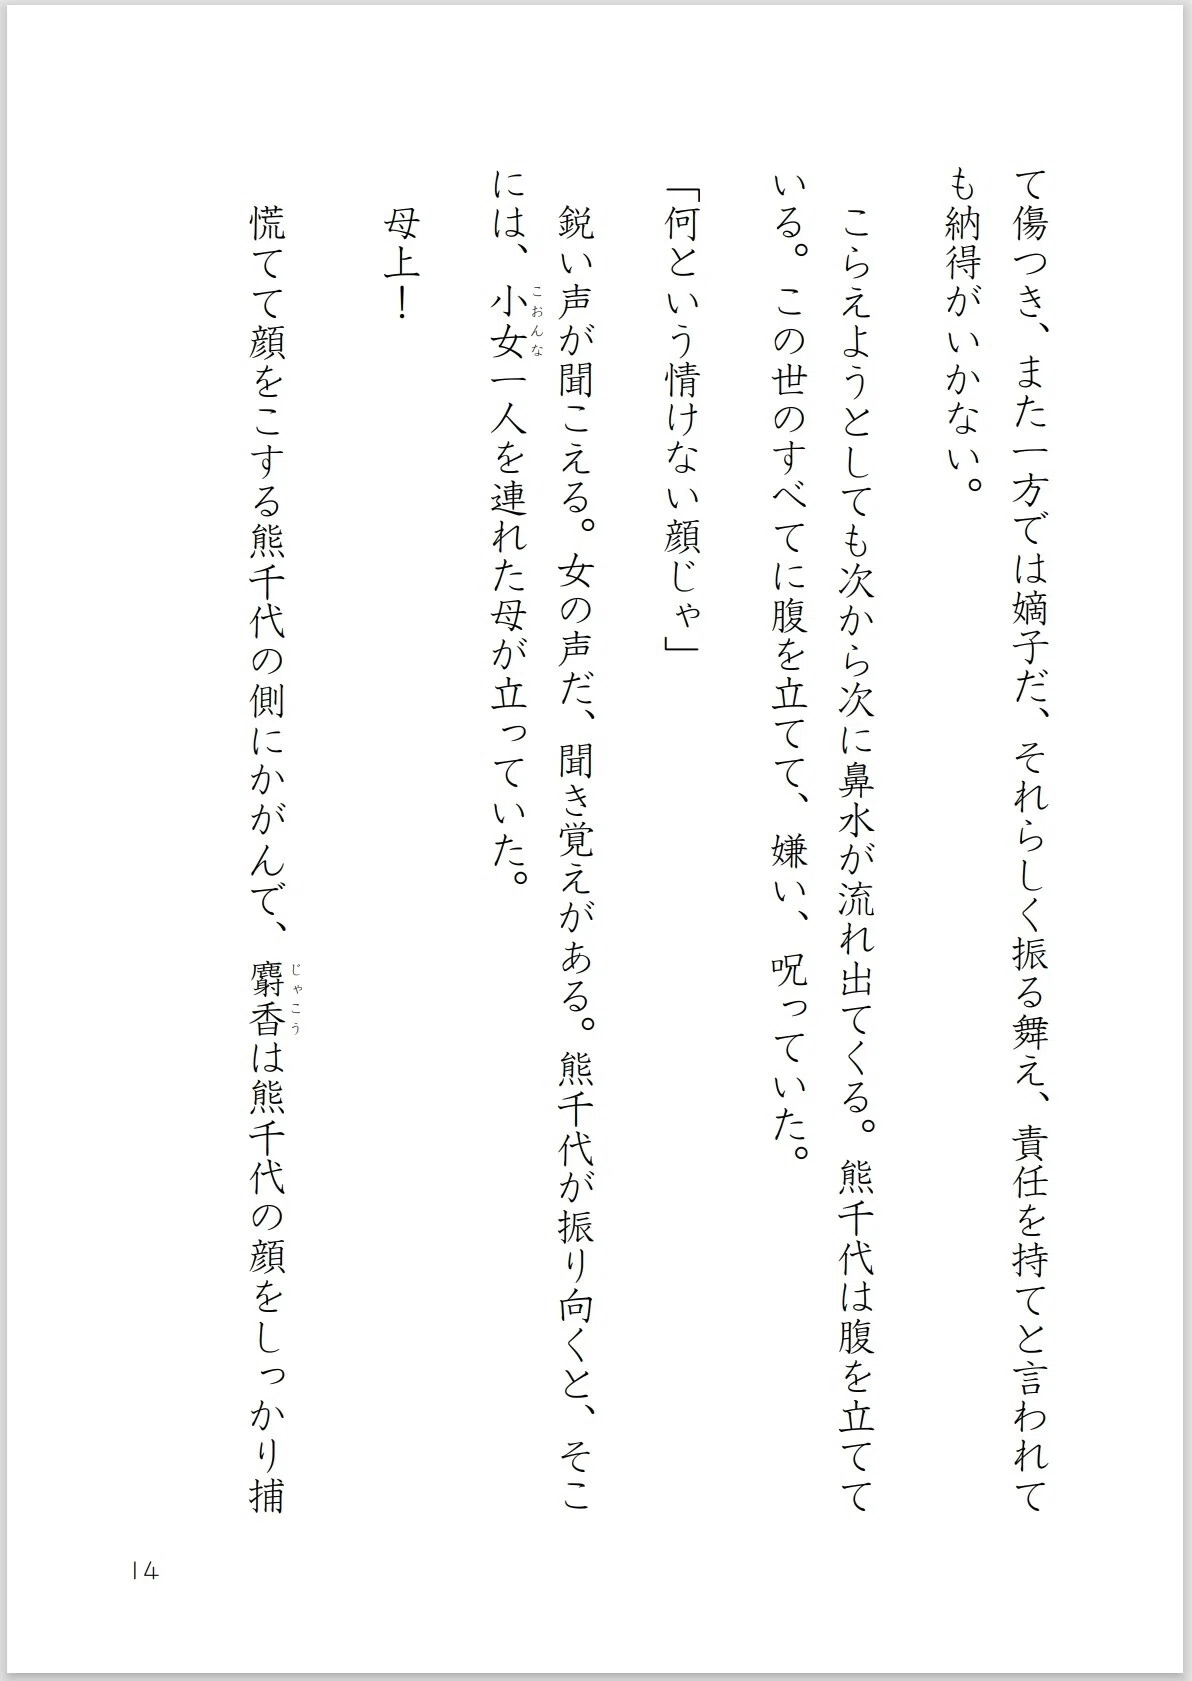 て傷つき、また一方では嫡子だ、それらしく振る舞え、責任を持てと言われて
も納得がいかない。
こらえようとしても次から次に鼻水が流れ出てくる。熊千代は腹を立てて
いる。この世のすべてに腹を立てて、嫌い、呪っていた。
「何という情けない顔じゃ」
鋭い声が聞こえる。女の声だ、聞き覚えがある。熊千代が振り向くと、そこ
には、小女一人を連れた母が立っていた。
こおんな
母上！
慌てて顔をこする熊千代の側にかがんで、麝香は熊千代の顔をしっかり捕
じゃこう
14